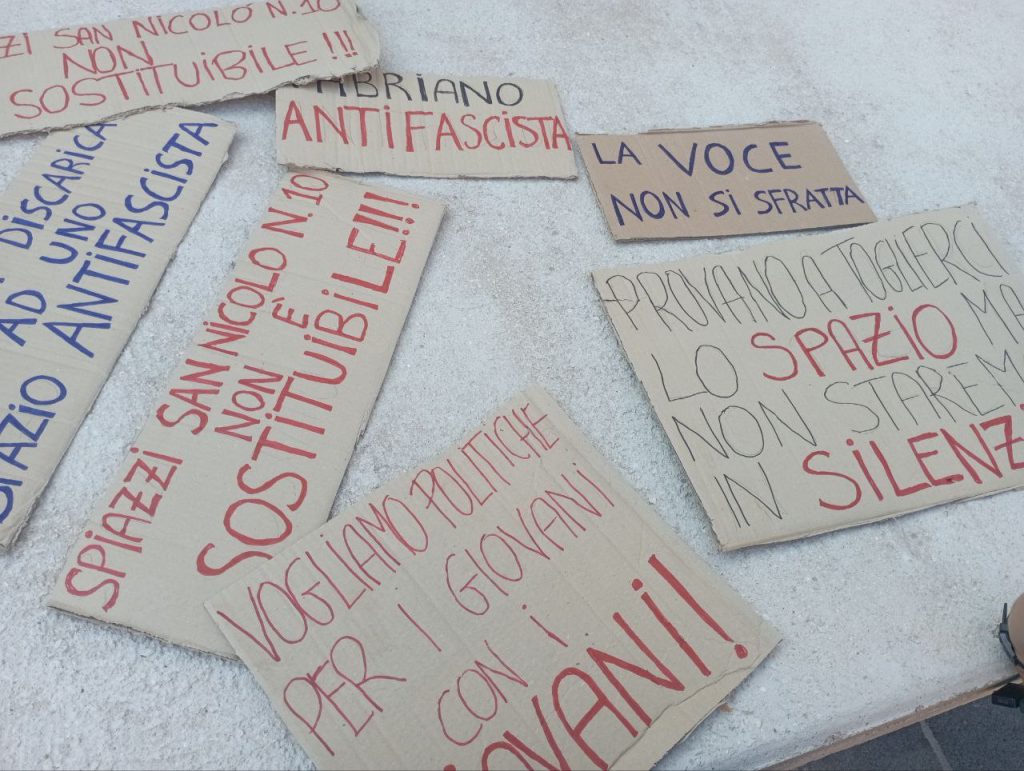 SAN NICOLO N.10
NON
SOSTITUIBILE!!!
FABRIANO
ANTIFASCISTA
LA VOCE
NON SI SFRATTA
DISCARICA
AD UNO
SPAZIO ANTIFASCISTA
SPIAZZI SAN NICOLO N.10
NON É
SOSTITUIBILE!!!
PROVANO A TOGLIERCI
LO SPAZIO MA
NON STAREM
IN SILENZI
VOGLIAMO POLITICHE
PER I GIOVANI
CON I
GIOVANI!